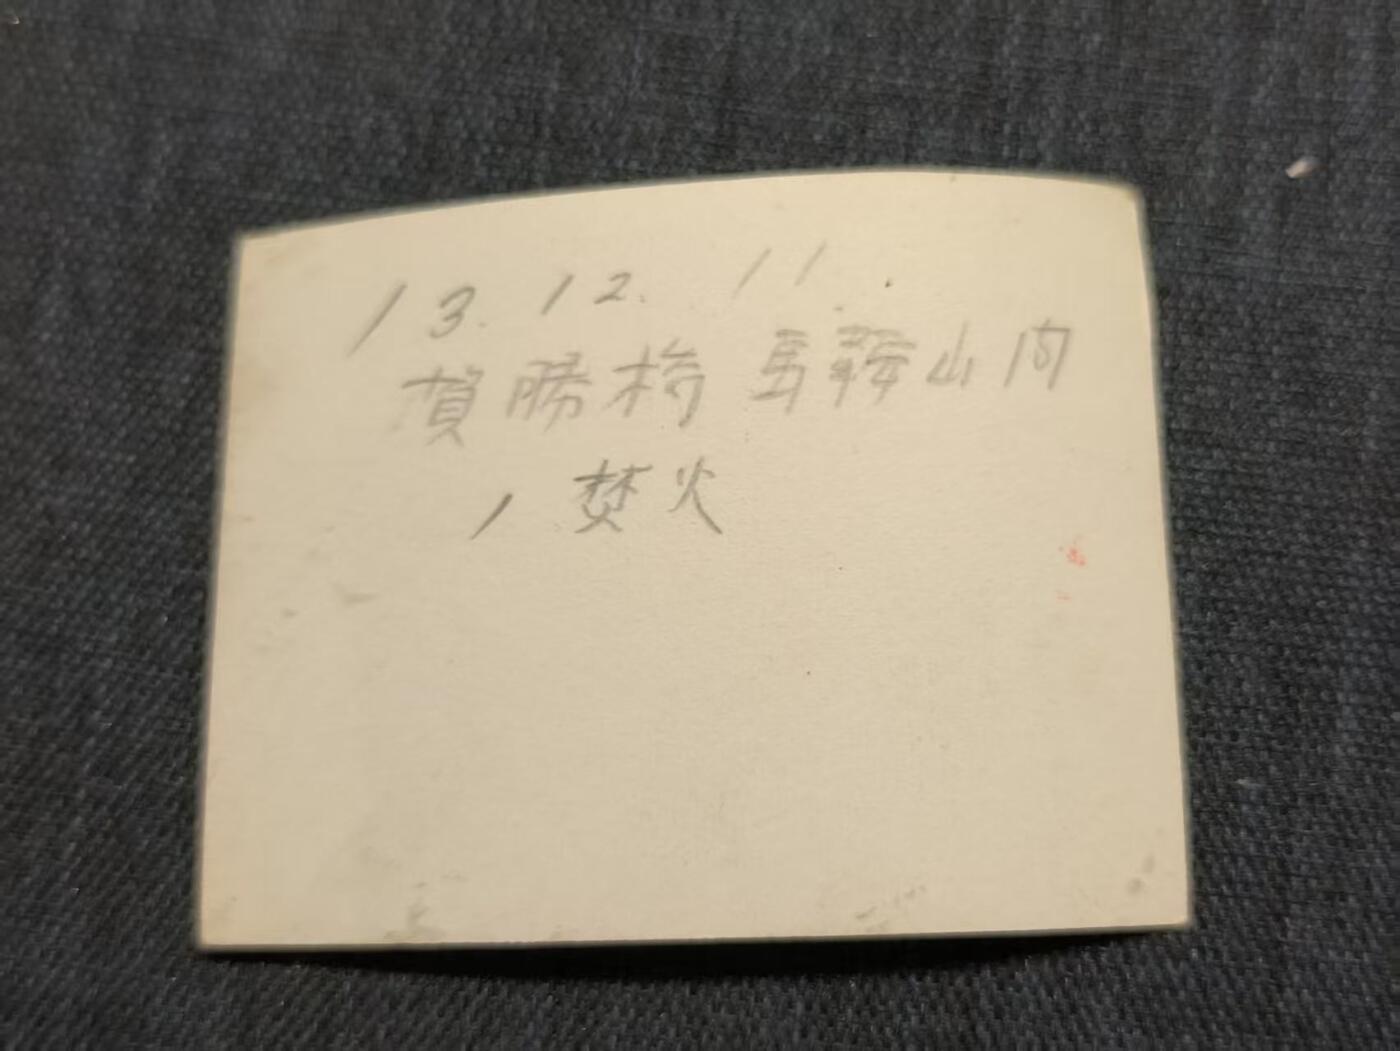 13. 12. 11.
賀勝橋 馬鞍山内
ノ 焚火